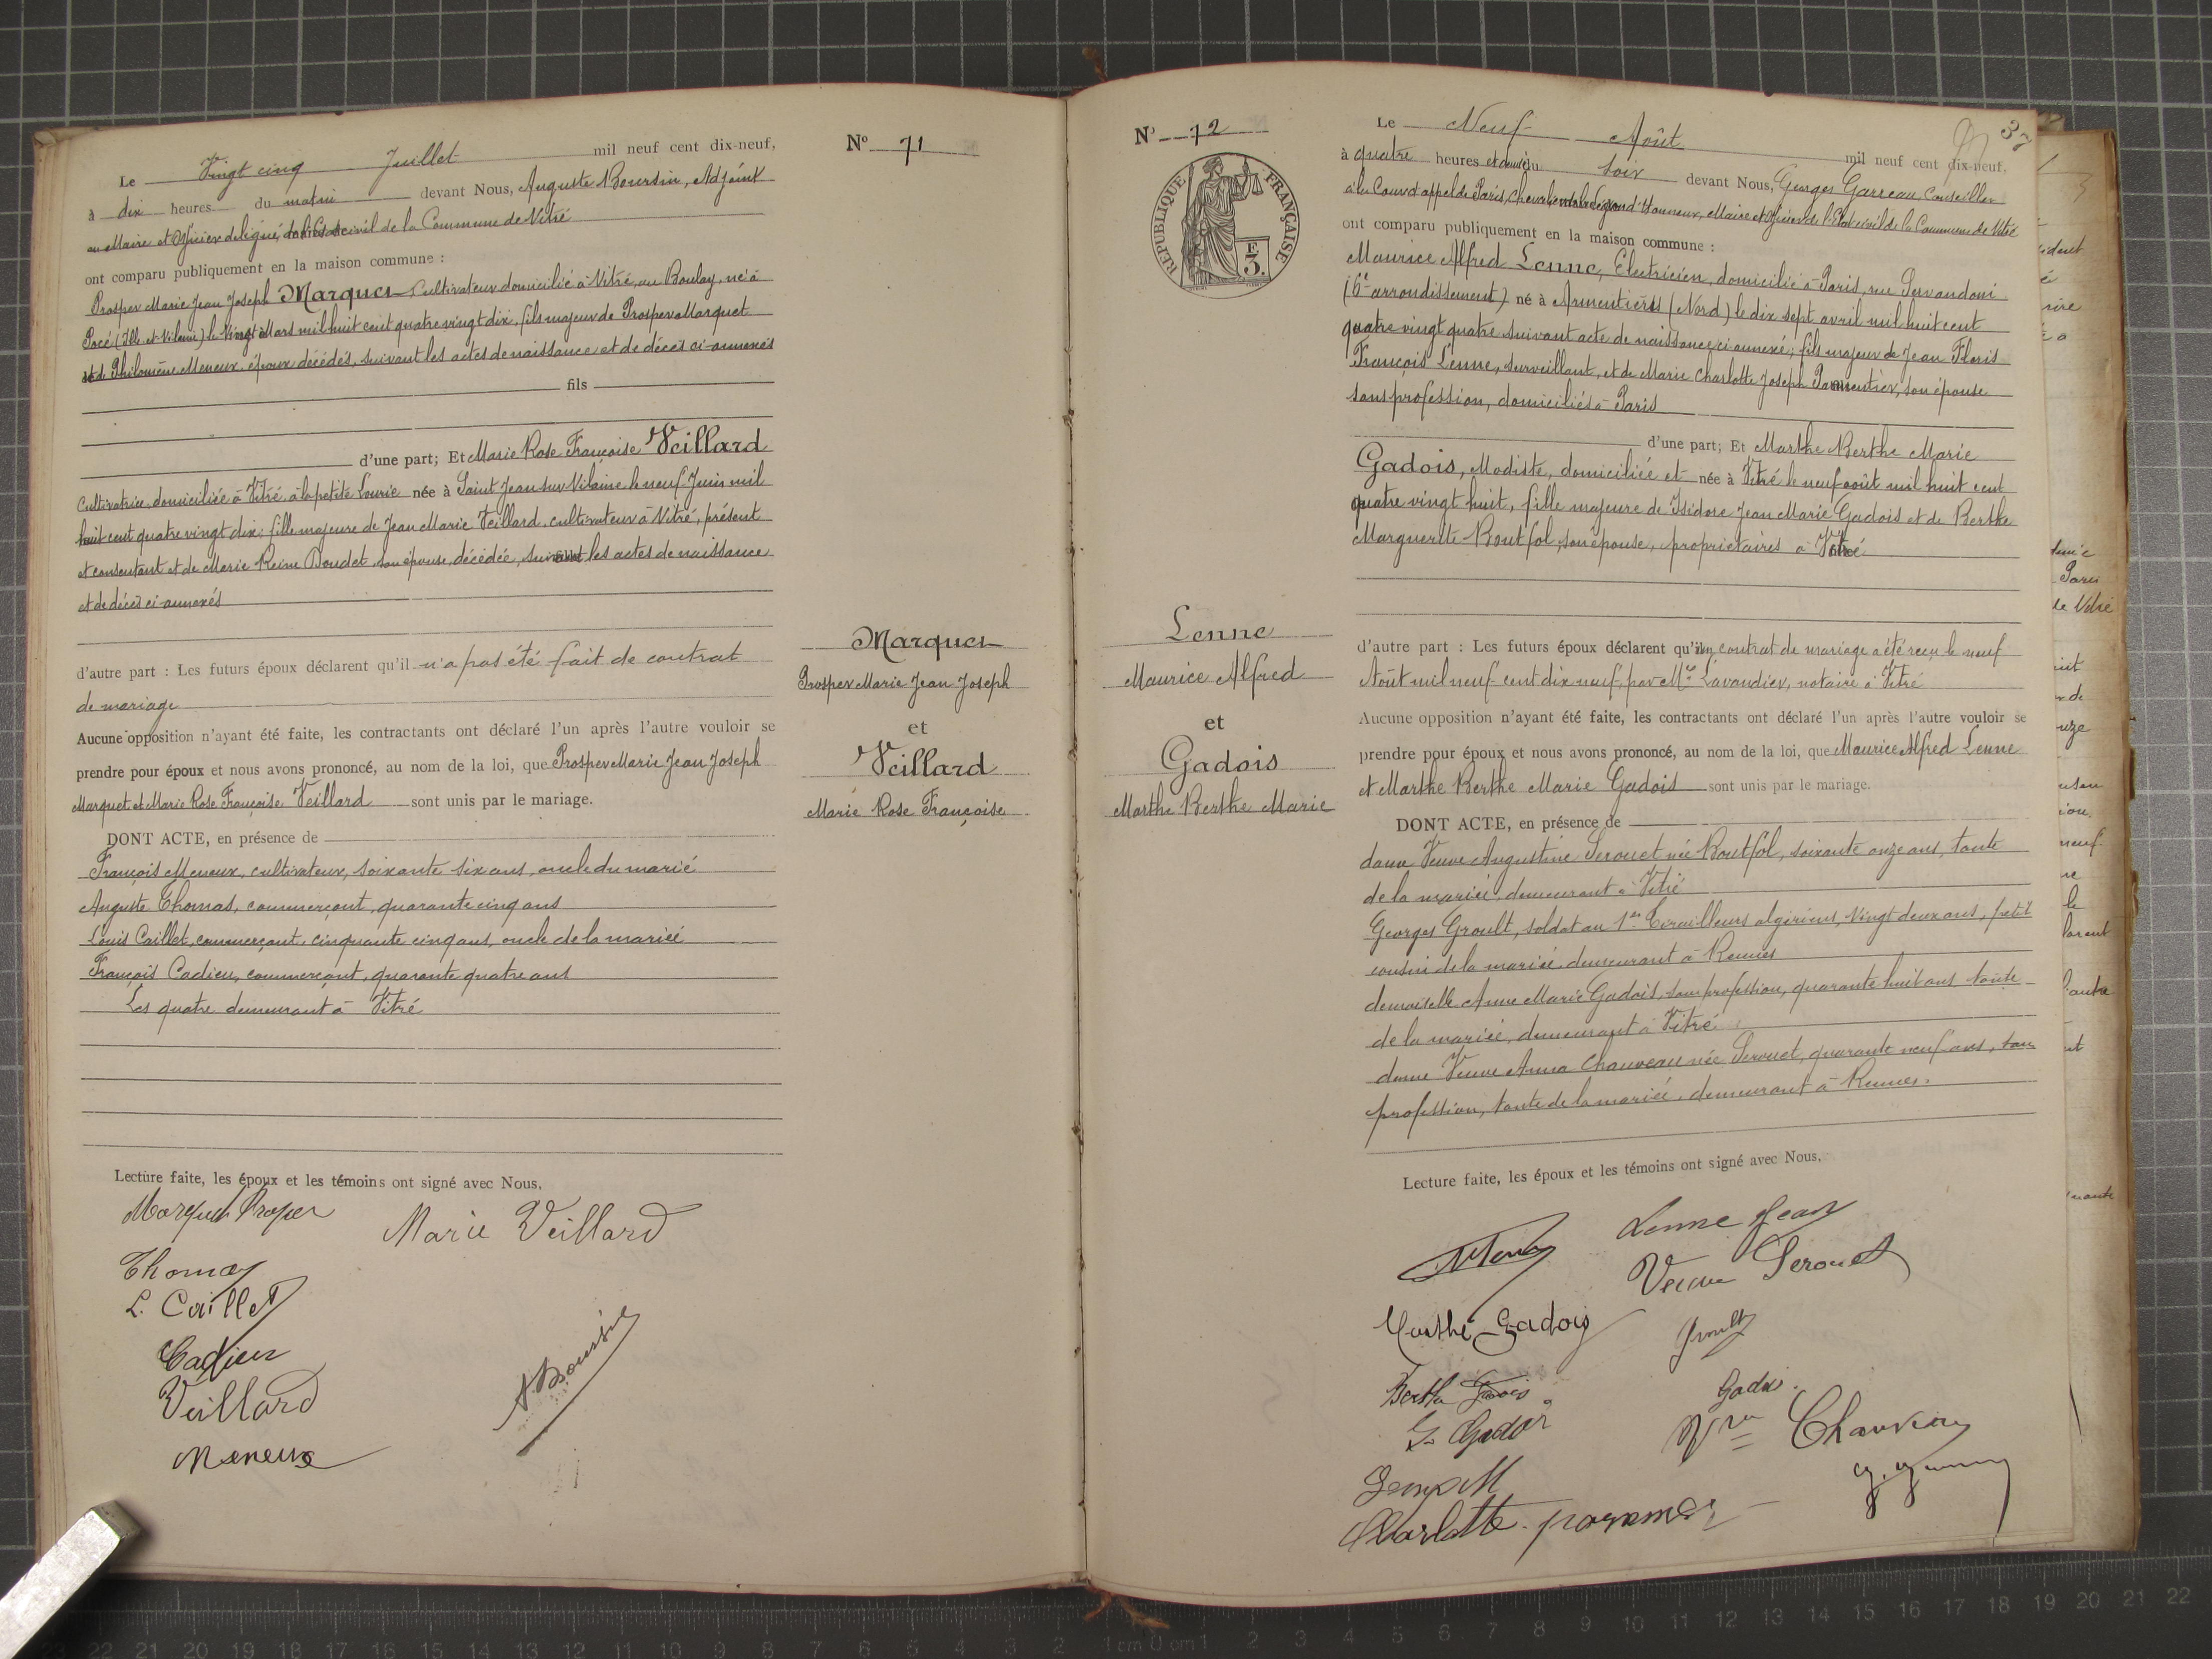 Le Vingt cinq Juillet mil neuf cent dix-neuf,
à dix heures du matin devant Nous, Auguste Boursin, Adjoint
au Maire et Officier délégué, de l'Etat civil de la Commune de Vitré
ont comparu publiquement en la maison commune :
Prosper Marie Jean Joseph Marquet Cultivateur domicilié à Vitré, au Boulay, né à
Pocé (Ille et Vilaine) le Vingt Mars mil huit cent quatre vingt dix, fils majeur de Prosper Marquet
et de Philomène Meneux, époux décédés, suivant les actes de naissance et de décès ci-annexés
fils
d'une part; Et Marie Rose Françoise Veillard
Cultivatrice, domiciliée à Vitré, à la petite Lourie née à Saint Jean sur Vilaine le neuf Juin mil
huit cent quatre vingt dix, fille majeure de Jean Marie Veillard, cultivateur à Vitré, présent
et consentant et de Marie Reine Doudet, son épouse, décédée, suivant les actes de naissance
et de décès ci-annexés
d'autre part : Les futurs époux déclarent qu'il n'a pas été fait de contrat
de mariage
Aucune opposition n'ayant été faite, les contractants ont déclaré l'un après l'autre vouloir se
prendre pour époux et nous avons prononcé, au nom de la loi, que Prosper Marie Jean Joseph
Marquet et Marie Rose Françoise Veillard sont unis par le mariage.
DONT ACTE, en présence de
François Meneux, cultivateur, soixante six ans, oncle du marié
Auguste Thomas, commerçant, quarante cinq ans
Louis Caillet, commerçant, cinquante cinq ans, oncle de la mariée
François Cadieu, commerçant, quarante quatre ans
Les quatre demeurant à Vitré
Lecture faite, les époux et les témoins ont signé avec Nous,
Marquet Prosper
Marie Veillard
Thomas
L. Caillet
Cadieu
Veillard
A. Boursin
Meneux
No 71
Marquet
Prosper Marie Jean Joseph
et
Veillard
Marie Rose Françoise
No 72
RÉPUBLIQUE FRANÇAISE
E
3.
Lenne
Maurice Alfred
et
Gadois
Marthe Berthe Marie
37
Le Neuf Août mil neuf cent dix-neuf,
à quatre heures et demie du soir devant Nous, Georges Garreau, Conseiller
à la Cour d'appel de Paris, Chevalier de la Légion d'Honneur, Maire et Officier de l'Etat civil de la Commune de Vitré
ont comparu publiquement en la maison commune :
Maurice Alfred Lenne, Electricien, domicilié à Paris, rue Servandoni
(6e arrondissement) né à Armentières (Nord) le dix sept avril mil huit cent
quatre vingt quatre suivant acte de naissance ci annexé; fils majeur de Jean Floris
François Lenne, surveillant, et de Marie Charlotte Joseph Parmentier, son épouse
sans profession, domiciliés à Paris
d'une part; Et Marthe Berthe Marie
Gadois, Modiste, domiciliée et née à Vitré le neuf août mil huit cent
quatre vingt huit, fille majeure de Isidore Jean Marie Gadois et de Berthe
Marguerite Boutfol, son épouse, propriétaires à Vitré
d'autre part : Les futurs époux déclarent qu'un contrat de mariage a été reçu le neuf
Août mil neuf cent dix neuf, par Me Lavandier, notaire à Vitré
Aucune opposition n'ayant été faite, les contractants ont déclaré l'un après l'autre vouloir se
prendre pour époux et nous avons prononcé, au nom de la loi, que Maurice Alfred Lenne
et Marthe Berthe Marie Gadois sont unis par le mariage.
DONT ACTE, en présence de
dame Veuve Augustine Serouet née Boutfol, soixante onze ans, tante
de la mariée, demeurant à Vitré
Georges Groult, soldat au 1er Tirailleurs algériens, vingt deux ans, petit
cousin de la mariée, demeurant à Rennes
demoiselle Anne Marie Gadois, sans profession, quarante huit ans tante
de la mariée, demeurant à Vitré
dame Veuve Anna Chauveau née Serouet, quarante neuf ans, sans
profession, tante de la mariée, demeurant à Rennes.
Lecture faite, les époux et les témoins ont signé avec Nous,
Lenne Jean
Veuve Serouet
Marthe Gadois
Groult
Berthe Gadois
Gadois
G. Gadois
Vve Chauveau
Charlotte